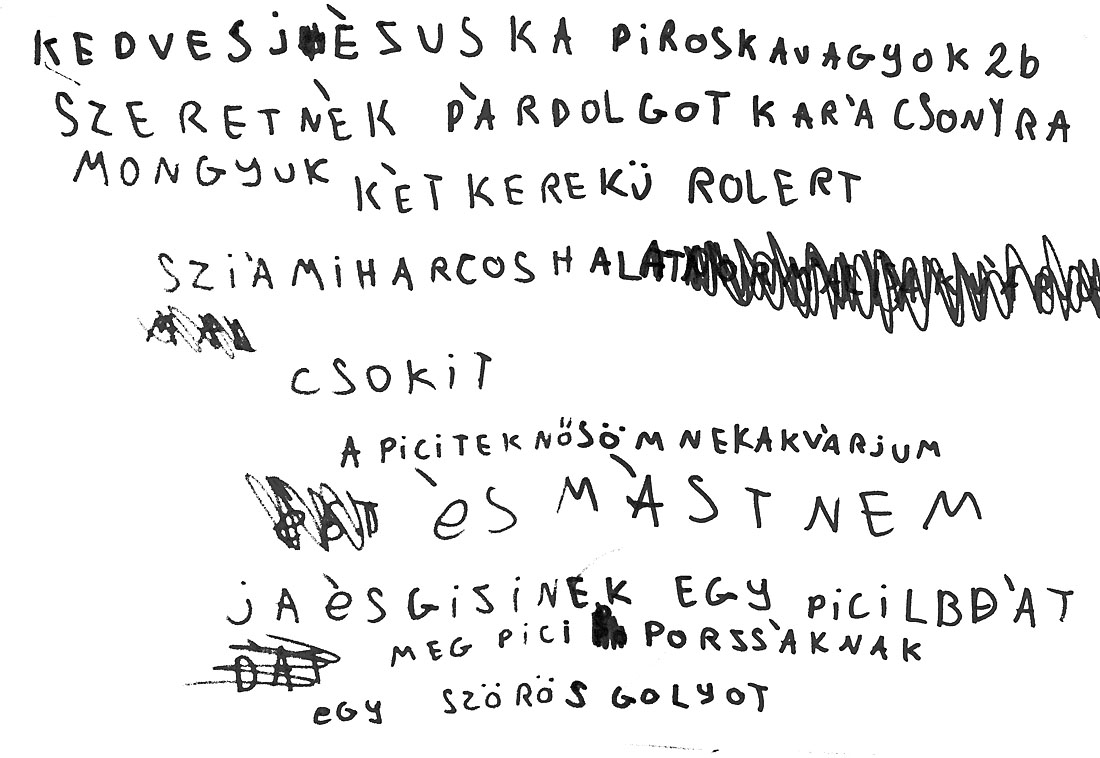 KEDVES JÈSUSKA PiROSKAVAGYOK 2b
SZERETNÈK PÀRDOLGOT KARÀCSONYRA
MONGYUK KÈTKEREKÜ ROLERT
SZiÀMiHARCOSHALAT
CSOKiT
A PiCiTEKNŐSÖMNEKAKVÀRJUM
ÈS MÀST NEM
jA ÈS GiSiNEK EGY PiCiLBDÀT
MEG PiCi PORSSÀKNAK
EGY SZÖRÖS GOLYOT